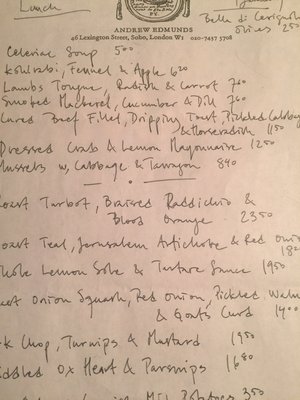 Lunch
Bella di Cerignola
Olives 250
P.C.
ANDREW EDMUNDS
46 Lexington Street, Soho, London W1 020-7437 5708
Celeriac Soup 500
Kohlrabi, Fennel & Apple 620
Lambs Tongue, Radish & Carrot 760
Smoked Mackerel, Cucumber & Dill 760
Cured Beef Fillet, Dripping Toast, Pickled Cabbage
& Horseradish 1150
Dressed Crab & Lemon Mayonnaise 1250
Mussels w. Cabbage & Tarragon 840
oast Turbot, Braised Raddichio &
Blood Orange 2350
oast Teal, Jerusalem Artichoke & Red Onion
hole Lemon Sole & Tartare Sauce 1950
Onion Squash, Red Onion, Pickled Waln
& Goats Curd 1400
k Chop, Turnips & Mustard 1950
ddled Ox Heart & Parsnips 1680
Potatoes 350